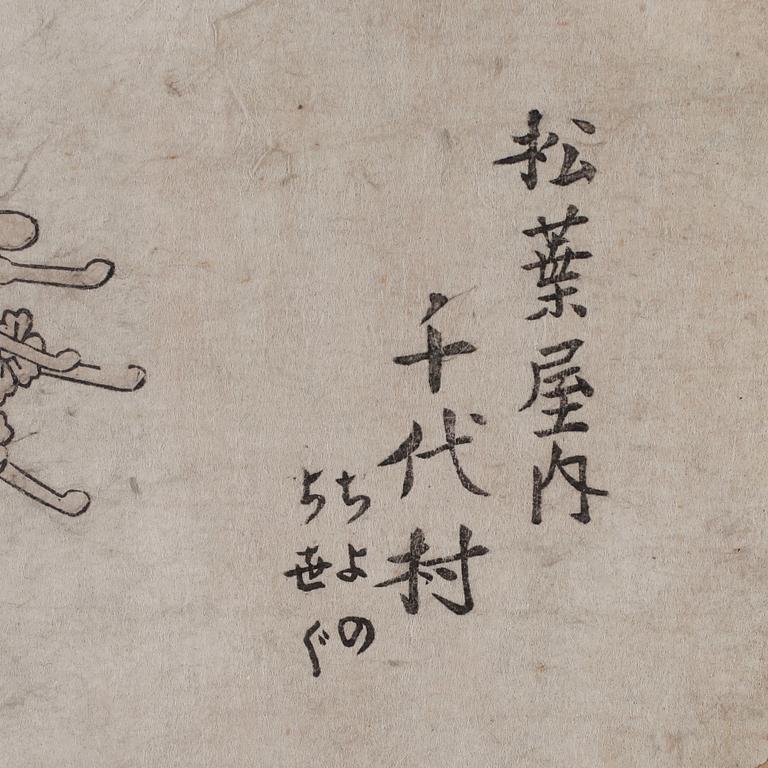 松葉屋内
千代村
ちよの
ちせぐ